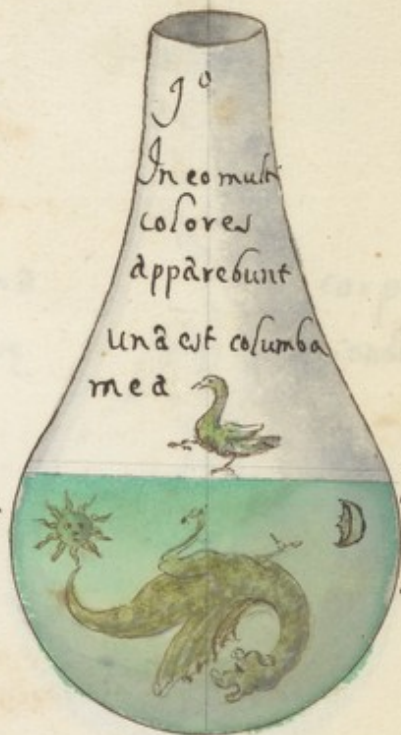 9º
In eo multi
colores
apparebunt
una est columba
mea